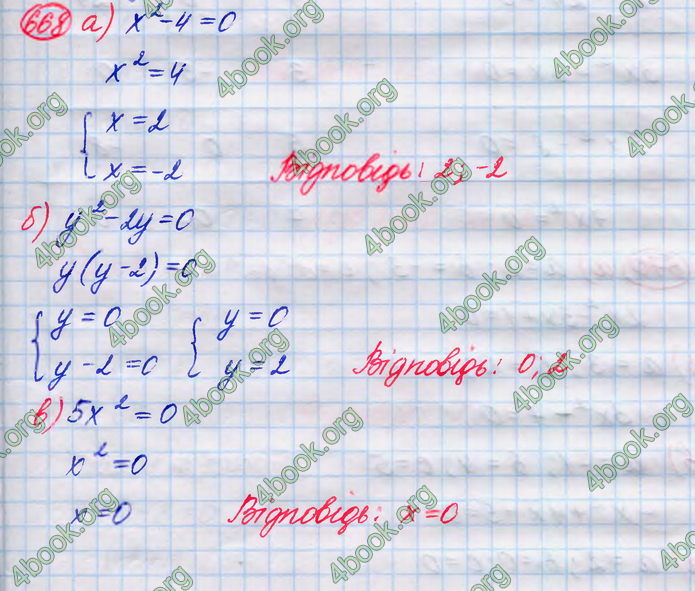 668 а) x²-4=0
x²=4
{ x=2
x=-2 Відповідь: 2; -2
б) y²-2y=0
y(y-2)=0
{ y=0 { y=0
y-2=0 y=2 Відповідь: 0; 2
в) 5x²=0
x²=0
x=0 Відповідь: x=0
4book.org